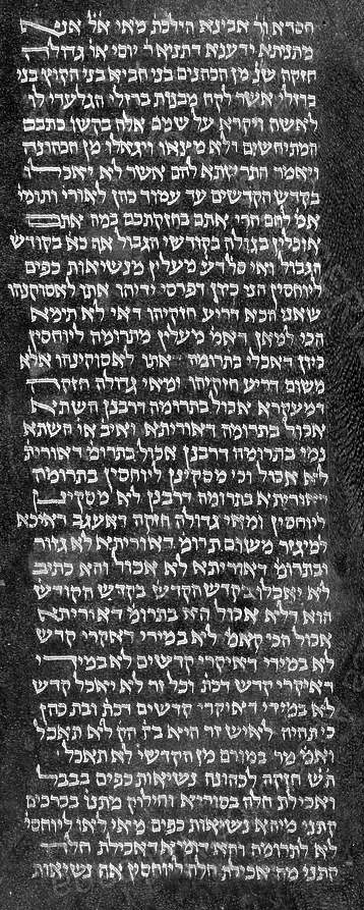 חסדא ורב אבינא הילכת מאי אל אנא
מתניתא ידענא דתניא ר יוסי או גדולה
חזקה שנ מן הכהנים בני חביא בני הקוץ בני
ברזלי אשר לקח מבנות ברזלי הגלעדי לו
לאשה ויקרא על שמם אלה בקשו כתבם
המתיחשים ולא נימצאו ויגאלו מן הכהונה
ויאמר התרשתא להם אשר לא יאכלו
בקדש הקדשים עד עמוד כהן לאורי ותומי
אמ להם הרי אתם בחזקתכם במה אתם
אוכלין בגולה בקודשי הגבול אה כא בקודשי
הגבול ואי סלדע מעלין מנשיאות כפים
ליוחסין הני כיון דפרסי ידיהו אתו לאסוקינהו
שאני הכא דריע חזקיהו דאי לא תימא
הכי למאן דאמ מעלין מתרומה ליוחסין
כיון דאכלי בתרומה אתו לאסוקינהו אלא
משום דריע חזקיהו ומאי גדולה חזקה
דמעקרא אכול בתרומה דרבנן השתא
אכול בתרומה דאוריתא ואיב או השתא
נמי בתרומה דרבנן אכול בתרומ דאורית
לא אכול וכי מסקינן ליוחסין בתרומה
דאוריתא בתרומה דרבנן לא מסקינן
ליוחסין ומאי גדולה חזקה דאעגב דאיכא
למיגזר משום תרומ דאוריתא לא גזור
ובתרומ דאוריתא לא אכול והא כתיב
לא יאכלו בקדש הקדשים בקדש הקודש
הוא דלא אכול הא בתרומ דאוריתא
אכול הכי קאמ לא במידי דאקרי קדש
לא במידי דאיקרי קדשים לא במידי
דאיקרי קדש דכת וכל זר לא יאכל קדש
לא במידי דאוקרי קדשים דכת ובת כהן
כי תהיה לאיש זר היא בת הק לא תאכל
ואמ מר במורם מן הקדשי לא תאכל
תש חזקה לכהונה נשיאות כפים בבבל
ואכילת חלה בסוריא וחילוק מתנו בכרכים
קתני מיהא נשיאות כפים מאי לאו ליוחסי
לא לתרומה והא דומיא דאכילת חלה
קתני מה אכילת חלה ליוחסין אה נשיאות